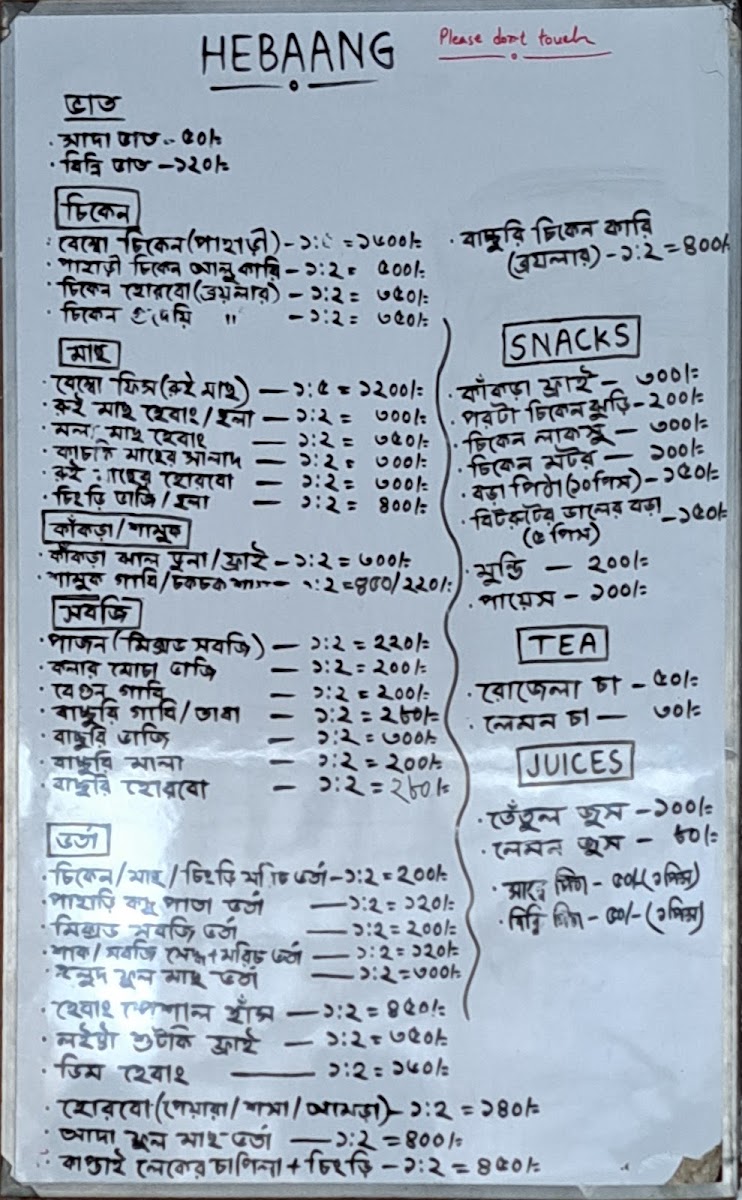 HEBAANG
Please don't touch
ভাত
· সাদা ভাত - ৫০/=
· বিন্নি ভাত - ১২০/=
চিকেন
· বেম্বো চিকেন (পাহাড়ী) - ১: = ১৬০০/=
· পাহাড়ী চিকেন আলু কারি - ১:২ = ৫০০/=
· চিকেন হোরবো (ব্রয়লার) - ১:২ = ৩৫০/=
· চিকেন " - ১:২ = ৩৫০/=
মাছ
· বেম্বো ফিস (রুই মাছ) — ১:৫ = ১২০০/=
· রুই মাছ হেবাং / হলা — ১:২ = ৩০০/=
· মলা মাছ হেবাং — ১:২ = ৩৫০/=
· কাচকি মাছের সালাদ — ১:২ = ৩০০/=
· রুই মাছের হোরবো — ১:২ = ৩০০/=
· চিংড়ি ভাজি / হলা — ১:২ = ৪০০/=
কাঁকড়া / শামুক
· কাঁকড়া ঝাল ভুনা / ফ্রাই - ১:২ = ৭০০/=
· শামুক গাবি / চকচক - ১:২ = ৪৫০/২২০/=
সবজি
· পাজন (মিক্সড সবজি) — ১:২ = ২২০/=
· কলার মোচা ভাজি — ১:২ = ২০০/=
· বেগুন গাবি — ১:২ = ২০০/=
· বাচ্ছুরি গাবি / ভাধা — ১:২ = ২৮০/=
· বাচ্ছুরি ভাজি — ১:২ = ৩০০/=
· বাচ্ছুরি মালা — ১:২ = ২০০/=
· বাচ্ছুরি হোরবো — ১:২ = ২৮০/=
ভর্তা
· চিকেন / মাছ / চিংড়ি মরিচ ভর্তা - ১:২ = ২০০/=
· পাহাড়ি কদু পাতা ভর্তা — ১:২ = ১২০/=
· মিক্সড সবজি ভর্তা — ১:২ = ২০০/=
· শাক / সবজি সেদ্ধ + মরিচ ভর্তা — ১:২ = ১২০/=
· হলুদ ফুল মাছ ভর্তা — ১:২ = ৩০০/=
· হেবাং স্পেশাল হাঁস — ১:২ = ৪৫০/=
· লইট্টা শুটকি ফ্রাই — ১:২ = ৩৫০/=
· ডিম হেবাং — ১:২ = ১৬০/=
· হোরবো (পেয়ারা / শসা / আমড়া) - ১:২ = ১৪০/=
· আদা ফুল মাছ ভর্তা — ১:২ = ৪০০/=
· কাপ্তাই লেকের চাপিলা + চিংড়ি - ১:২ = ৪৫০/=
· বাচ্ছুরি চিকেন কারি
(ব্রয়লার) - ১:২ = ৪০০/=
SNACKS
· কাঁকড়া ফ্রাই - ৩০০/=
· পরটা চিকেন ঝুড়ি - ২০০/=
· চিকেন লাকসু - ৩০০/=
· চিকেন মটর - ১০০/=
· বড়া পিঠা (১০পিস) - ১৫০/=
· বিটরুটের ডালের বড়া - ১৫০/=
(৫ পিস)
· মুন্ডি — ২০০/=
· পায়েস - ১০০/=
TEA
· রোজেলা চা - ৫০/=
· লেমন চা — ৩০/=
JUICES
· তেঁতুল জুস - ১০০/=
· লেমন জুস - ৮০/=
· সান্নে পিঠা - ৫০/- (১ পিস)
· বিন্নি পিঠা - ৫০/- (১ পিস)